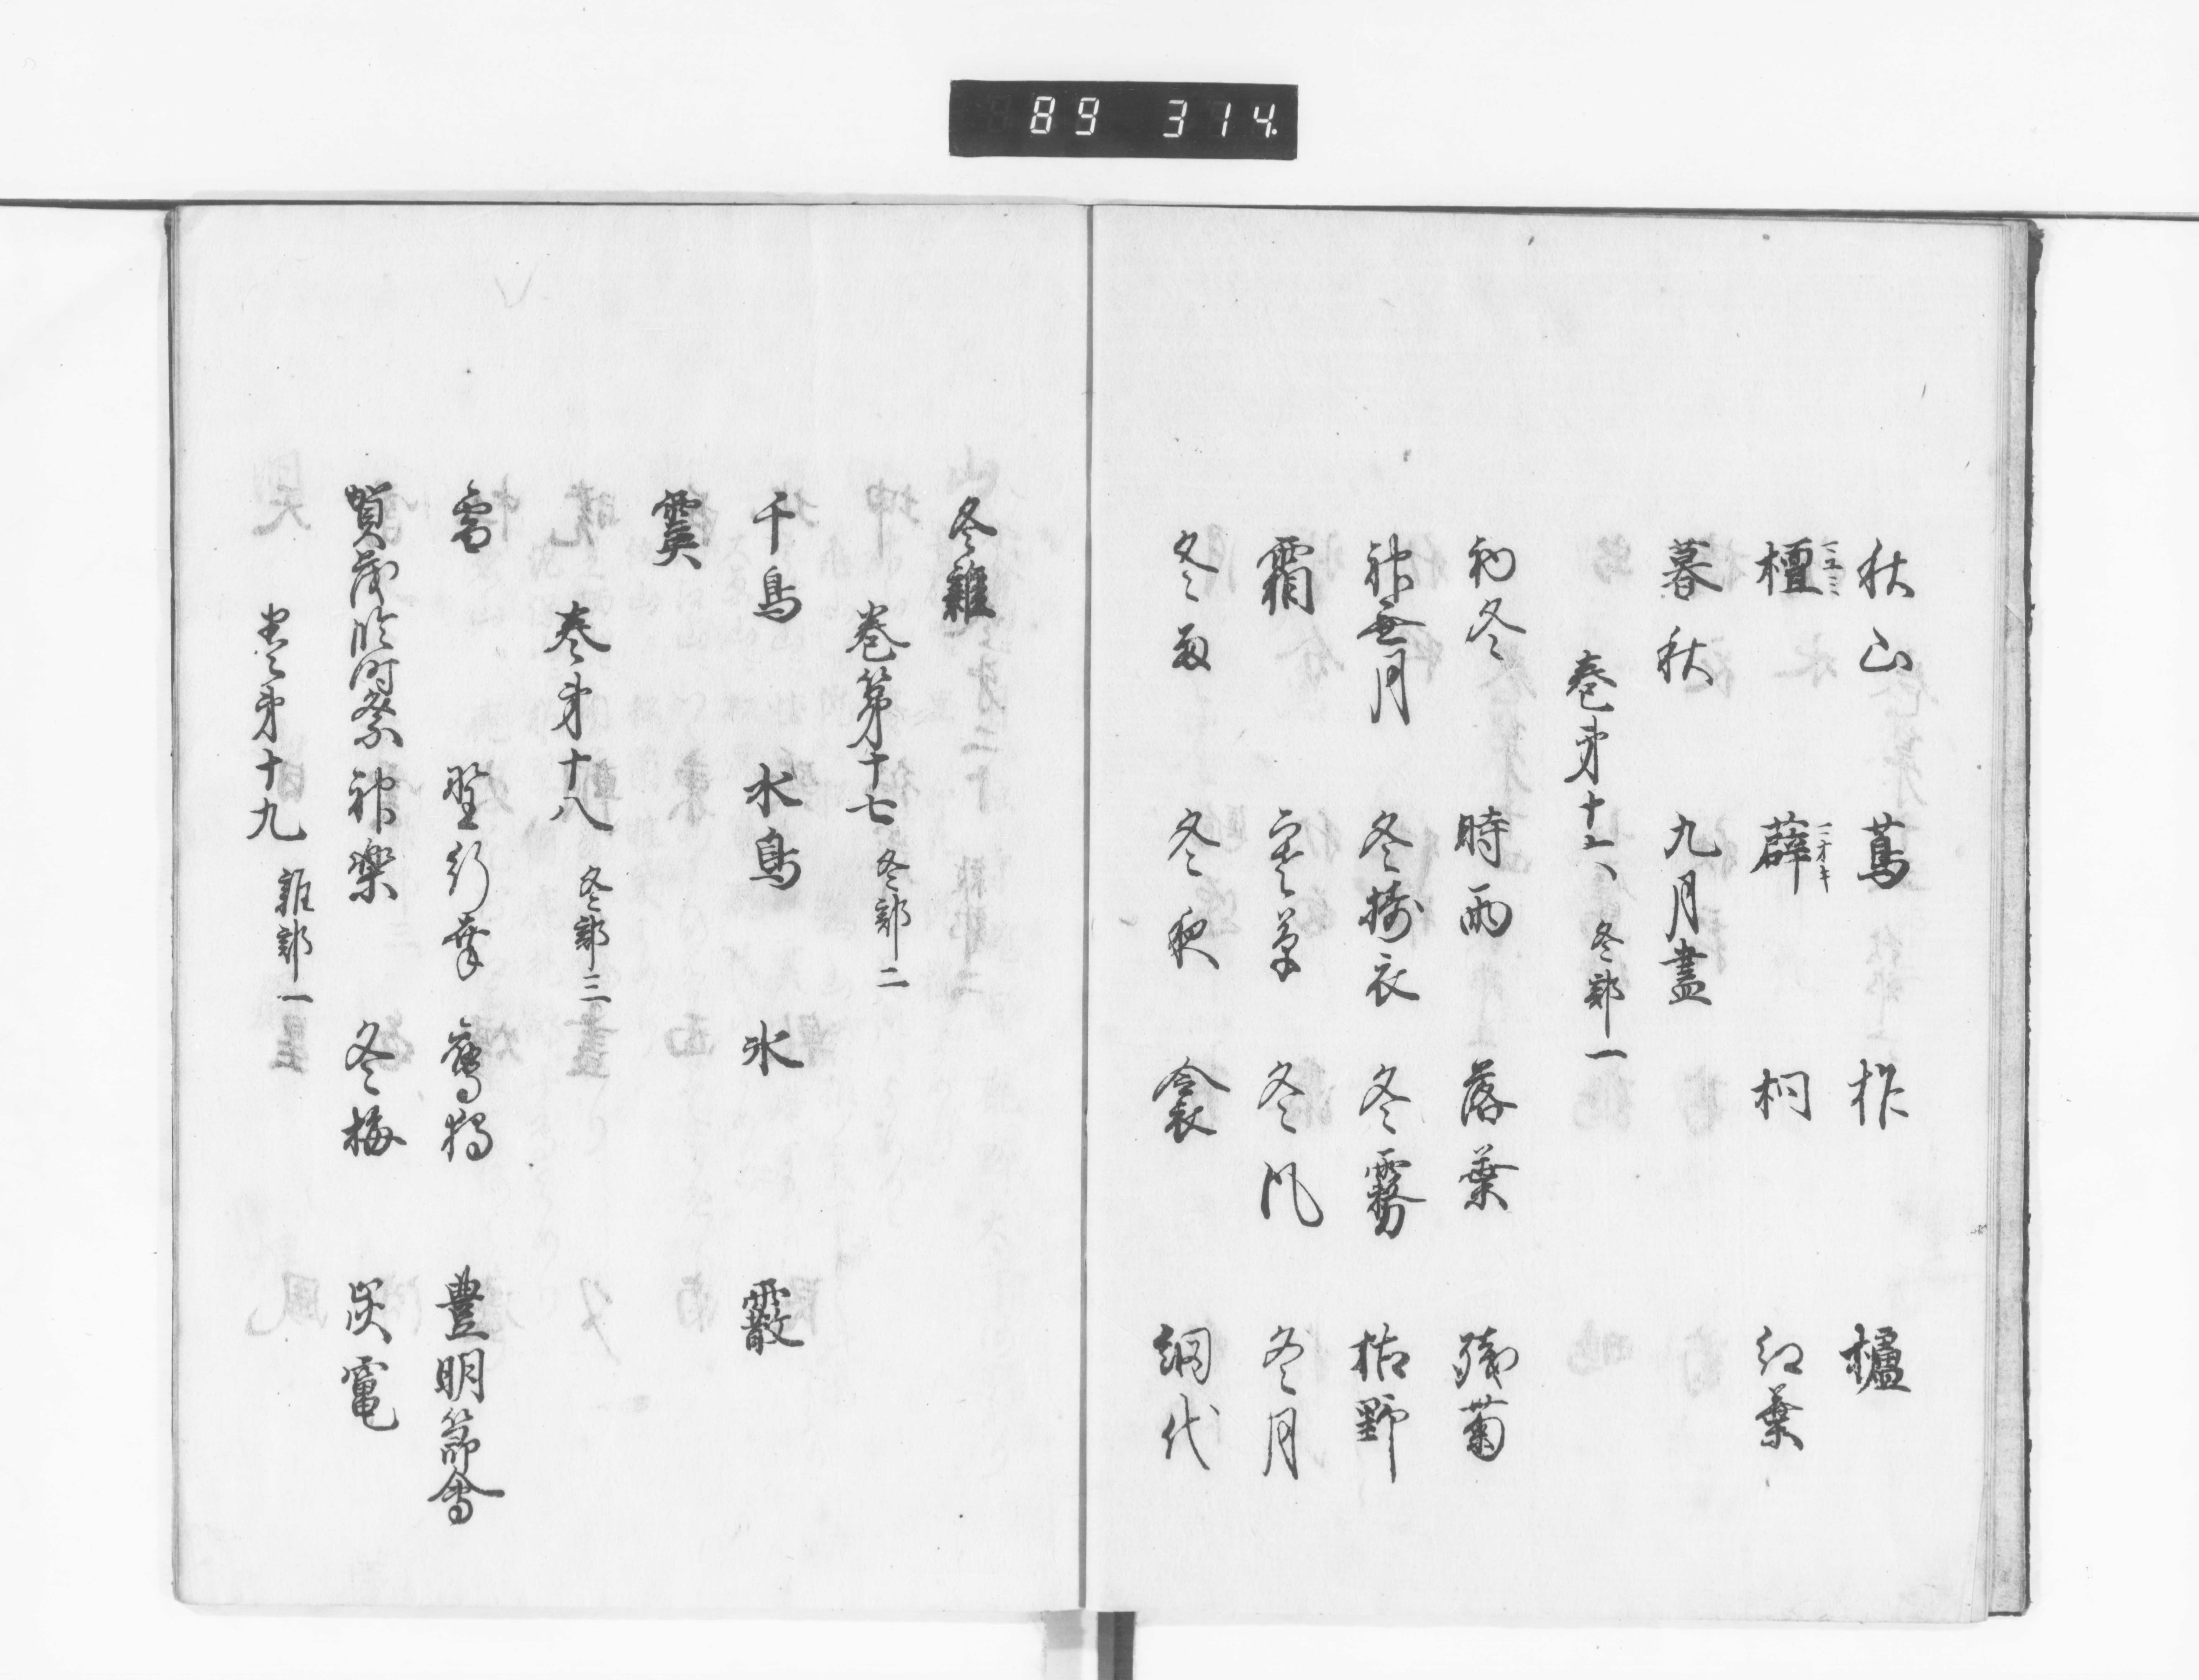 89 314.
秋山 蔦 柞 櫨
檀 薜 桐 紅葉
暮秋 九月盡
巻第十六 冬部一
初冬 時雨 落葉 残菊
神無月 冬擣衣 冬霧 枯野
霜 寒草 冬風 冬月
冬動 冬夜 衾 網代
冬雜
巻第十七 冬部二
千鳥 水鳥 氷 霰
霙
巻第十八 冬部三
雪 野行幸 鷹狩 豊明節會
賀茂臨時祭 神楽 冬梅 炭竃
巻第十九 雑部一